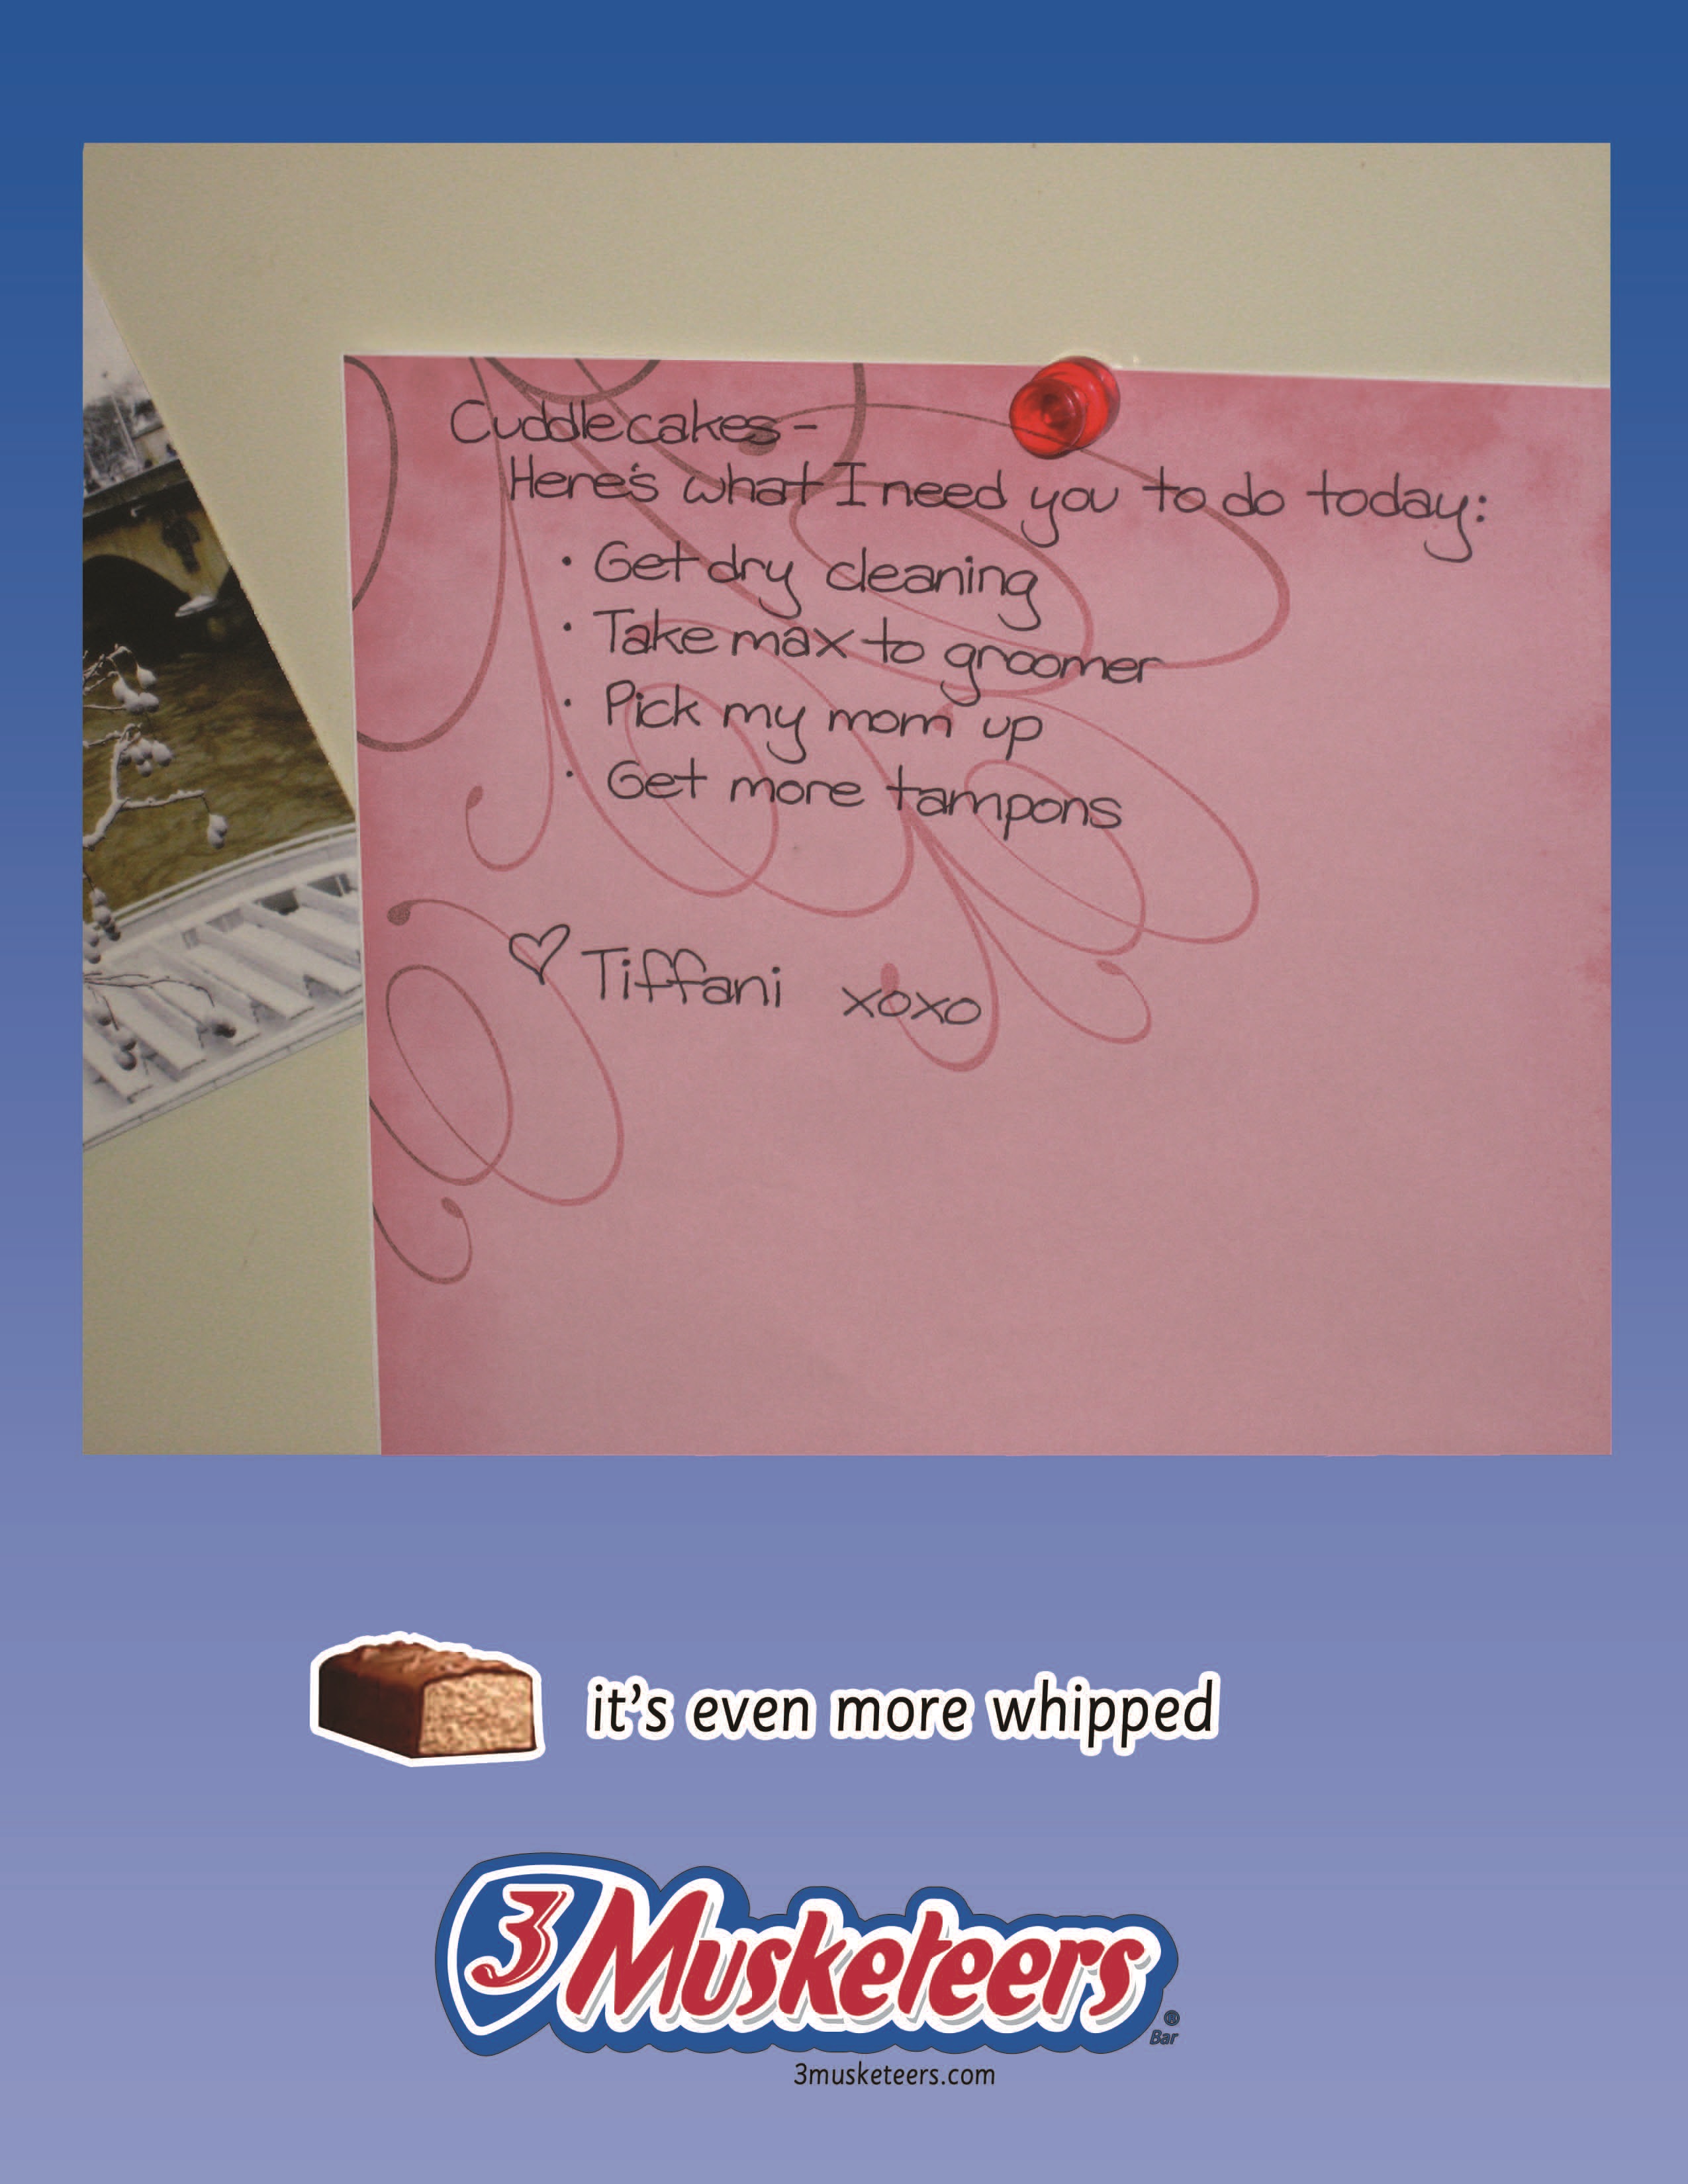 Cuddlecakes -
Here's what I need you to do today:
· Get dry cleaning
· Take max to groomer
· Pick my mom up
· Get more tampons
♡ Tiffani xoxo
it's even more whipped
3 Musketeers ®
Bar
3musketeers.com